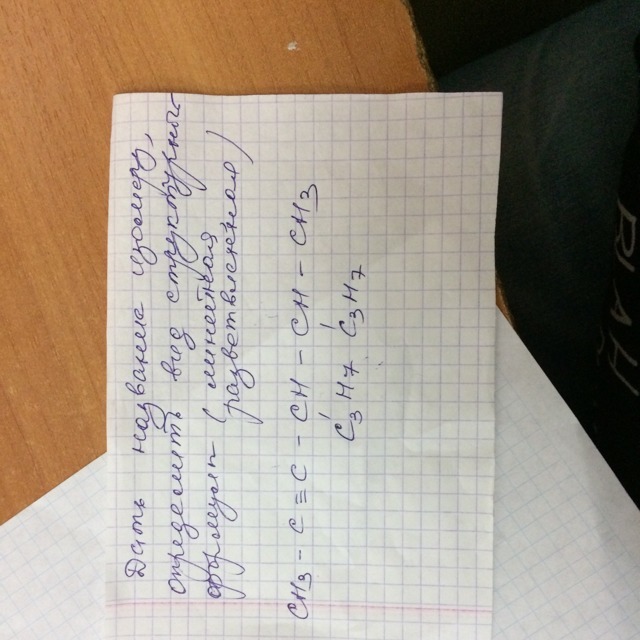 Дать название изомеру,
определить вид структурной
формулы (линейная
разветвлённая)
CH₃ - C ≡ C - CH - CH - CH₃
C₃H₇ C₃H₇